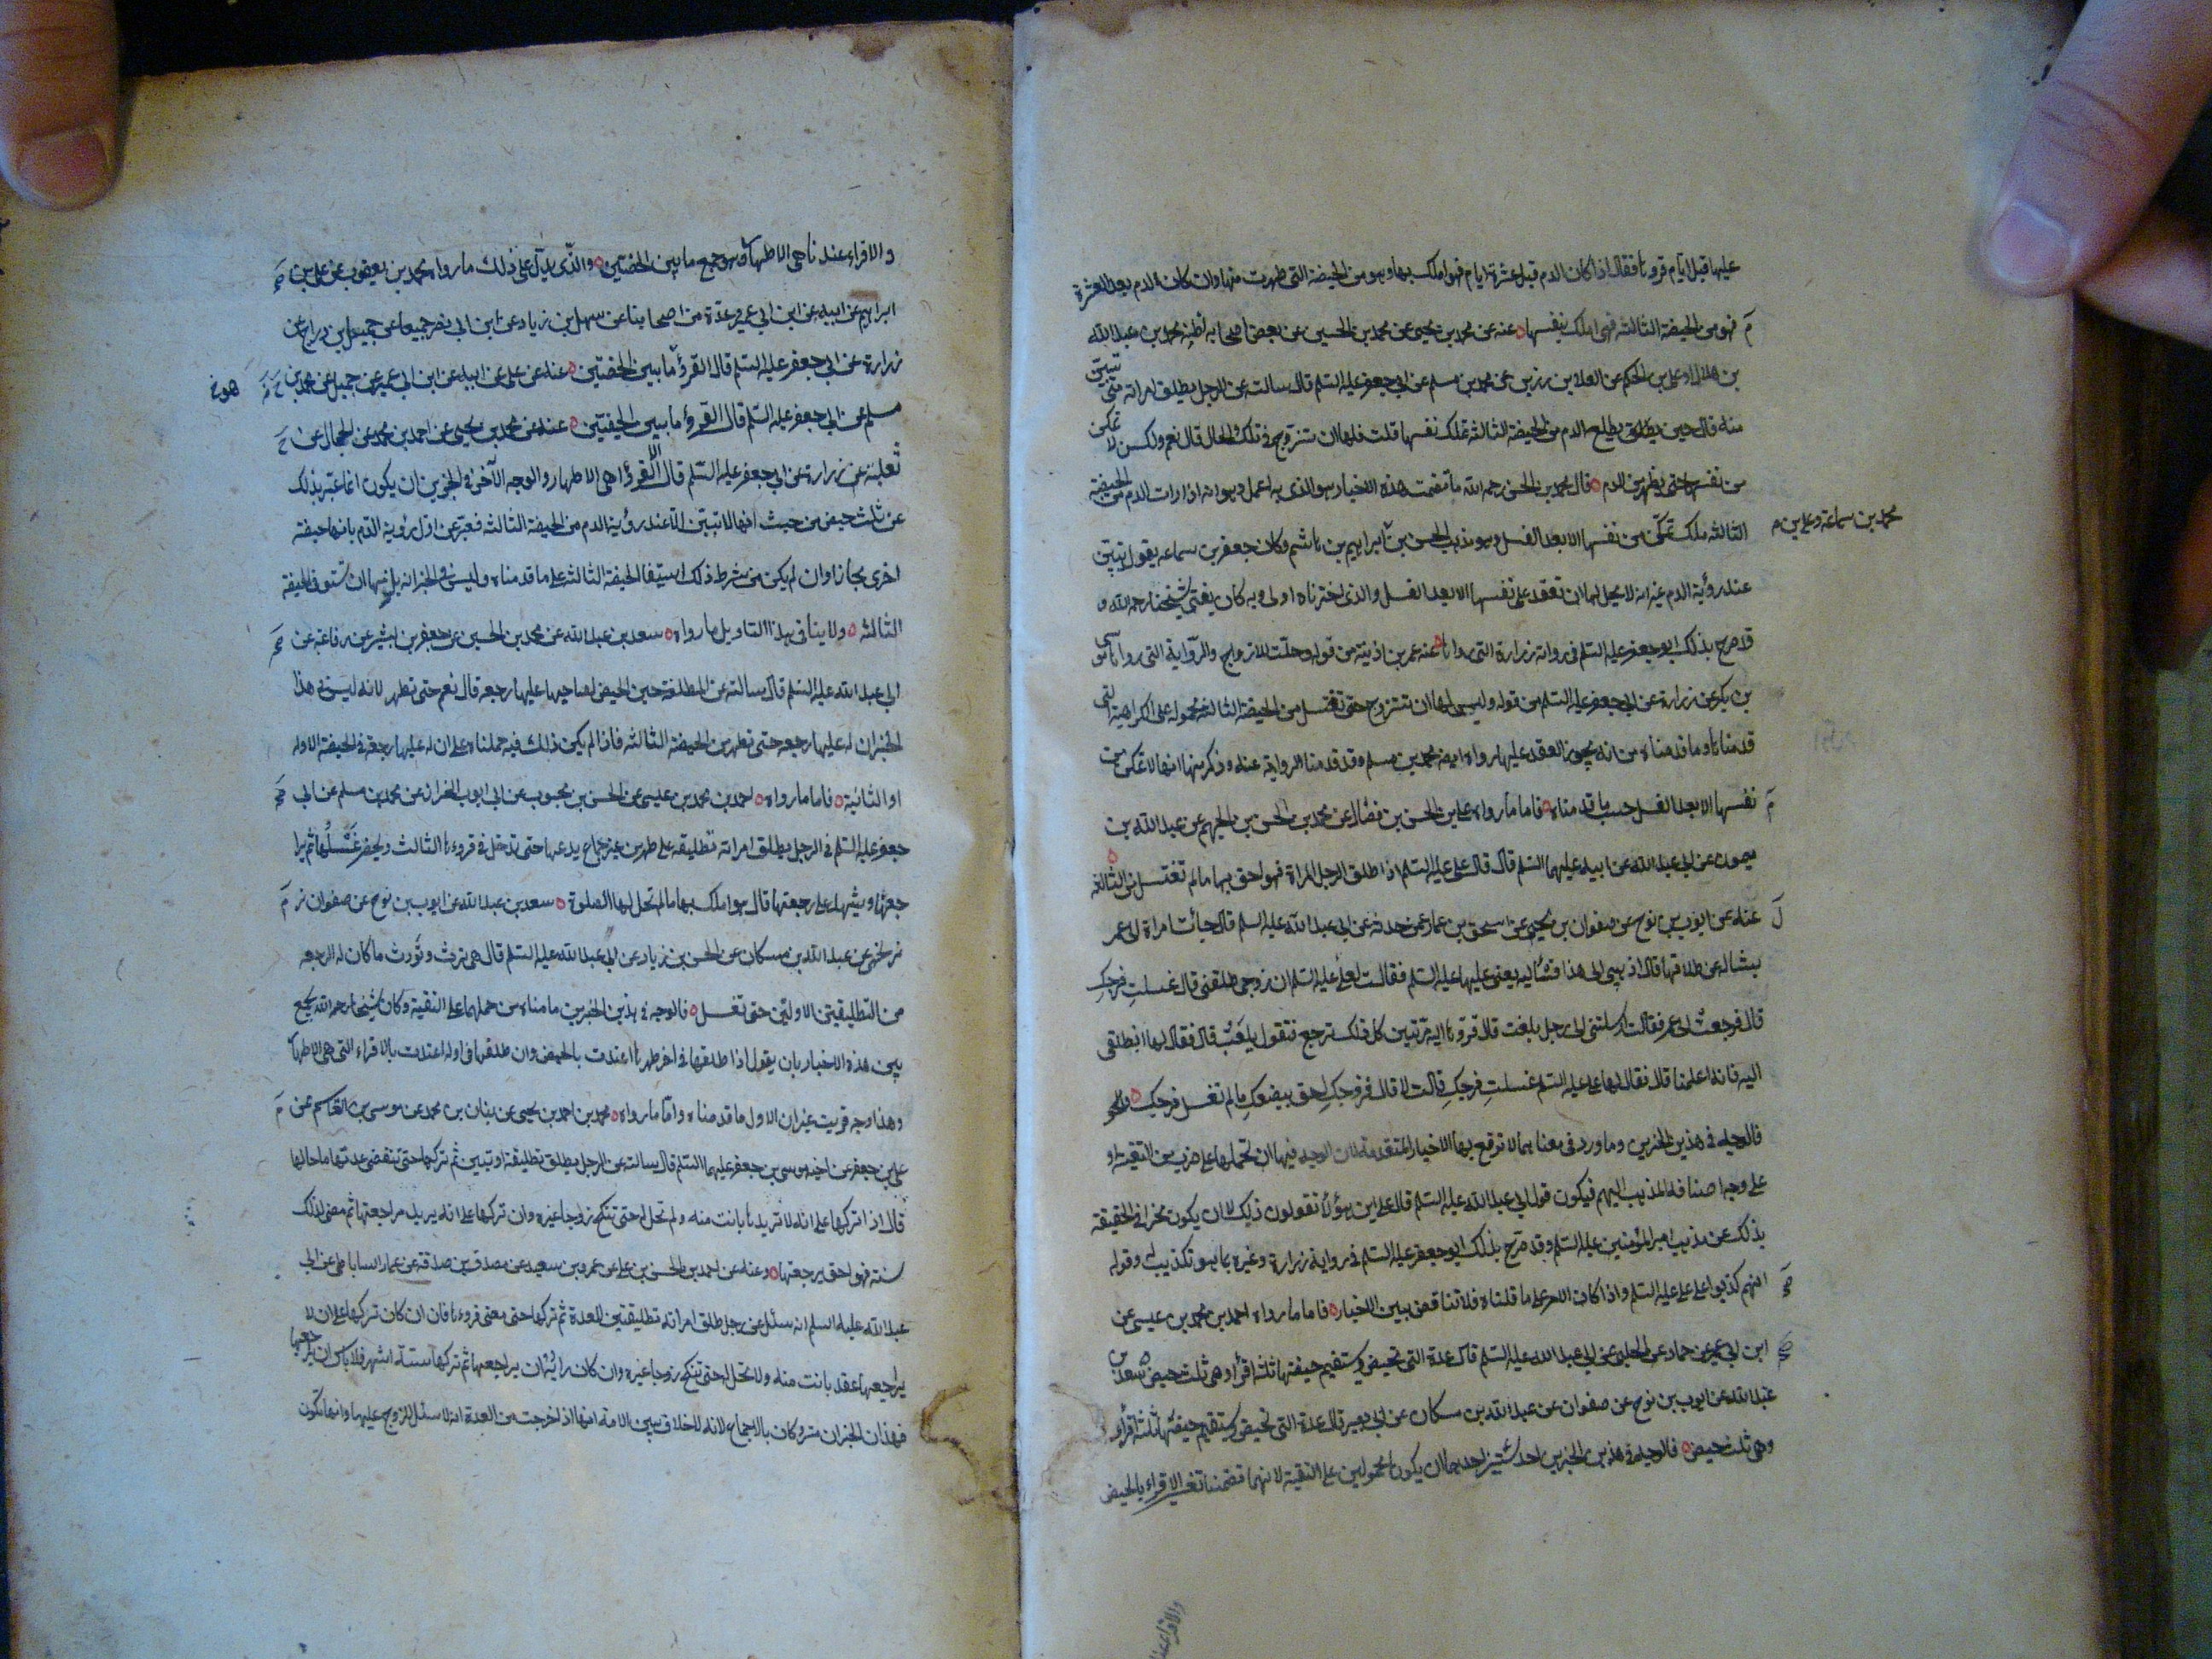 عليها قبل ايام قروءها فقال اذا كان الدم قبل عشرة ايام فهو املك بها وهو من الحيضة التي طهرت منها وان كان الدم بعد العشرة
فهو من الحيضة الثالثة فهي املك بنفسها عنه عن محمد بن يحيى عن محمد بن الحسين عن بعض اصحابه اظنه محمد بن عبد الله
بن هلال او علي بن الحكم عن العلا بن رزين عن محمد بن مسلم عن ابي جعفر عليه السلم قال سالته عن الرجل يطلق امراته متى تبين
منه قال حين يطلع الدم من الحيضة الثالثة تملك نفسها قلت فلها ان تتزوج في تلك الحال قال نعم ولكن لا تمكن
من نفسها حتى تطهر من الدم قال محمد بن الحسن رحمه الله ما تضمنت هذه الاخبار هو الذي به اعمل وهو انه اذا رات الدم من الحيضة
الثالثه ملك تمكن من نفسها الا بعد الغسل وهو مذهب الحسن بن ابراهيم بن هاشم وكان جعفر بن سماعه يقول تبين
محمد بن سماعة وعلي بن م
عند رؤية الدم غير انه لا يحل لها ان تعقد على نفسها الا بعد الغسل والذي اخترناه اولى وبه كان يفتي شيخنا رحمه الله و
قد صرح بذلك ابو جعفر عليه السلم في رواية زرارة التي رواها عنه عمر بن اذينة من قوله وحلت للازواج والرواية التي رواها موسى
بن بكر عن زرارة عن ابي جعفر عليه السلم من قوله وليس لها ان تتزوج حتى تغتسل من الحيضة الثالثة محموله على الكراهية التي
قدمناها وما قدمناه من انه يجوز العقد عليها رواه ايضه محمد بن مسلم وقد قدمنا الرواية عنه وذكر منها انها لا تمكن من
نفسها الا بعد الغسل حسب ما قدمناه فاما ما رواه علي بن الحسن بن فضال عن محمد بن الحسن بن الجهم عن عبد الله بن
ميمون عن ابي عبد الله عن ابيه عليهما السلم قال قال علي عليه السلم اذا طلق الرجل المراة فهو احق بها ما لم تغتسل من الثالثة
عنه عن ايوب بن نوح عن صفوان بن يحيى عن اسحق بن عمار عمن حدثه عن ابي عبد الله عليه السلم قال جائت امراة الى عمر
يسئاله عن طلاقها قال اذهبي الى هذا فاسئاليه يعني عليا عليه السلم فقالت لعلي عليه السلم ان زوجي طلقني قال غسلتِ فرجكِ
قال فرجعت الى عمر فقالت ارسلتني الى رجل يلعب قال فردها اليه مرتين كل ذلك ترجع فتقول يلعب قال فقال لها انطلقي
اليه فانه اعلمنا قال فقال لها علي عليه السلم غسلتِ فرجكِ قالت لا قال فزوجكِ احق ببضعكِ ما لم تغسلي فرجك
فالوجه في هذين الخبرين وما ورد في معناهما لا ترفع بها الاخبار المتقدمة لان الوجه فيها ان نحملها على ضرب من التقية او
على وجه اضافة المذهب اليهم فيكون قول ابي عبد الله عليه السلم قال علي ان هؤلاء تقولون ذلك لا ان يكون مخبرا في الحقيقة
بذلك عن مذهب امير المؤمنين عليه السلم وقد صرح بذلك ابو جعفر عليه السلم في رواية زرارة وغيره بما هو تكذيب وقوله
انهم كذبوا على علي عليه السلم واذا كان الامر على ما قلناه فلا تناقض بين الاخبار فاما ما رواه احمد بن محمد بن عيسى عن
ابن ابي عمير عن حماد عن الحلبي عن ابي عبد الله عليه السلم قال عدة التي تحيض ويستقيم حيضها ثلثة اقراء وهي ثلث حيض سعد بن
عبد الله عن ايوب بن نوح عن صفوان عن عبد الله بن مسكان عن ابي بصير قال عدة التي تحيض ويستقيم حيضها ثلثة اقراء
وهي ثلث حيض فالوجه في هذين الخبرين احد شيئين احدهما ان يكونا محمولين على التقية لانهما تضمنا تفسير الاقراء بالحيض
والاقراء عند
والاقراء عندنا هي الاطهار وهو جمع ما بين الحضتين والذي يدل على ذلك ما رواه محمد بن يعقوب عن علي بن
ابراهيم عن ابيه عن ابن ابي عمير وعدة من اصحابنا عن سهل بن زياد عن ابن ابي نصر جميعا عن جميل بن دراج عن
زرارة عن ابي جعفر عليه السلم قال القرؤ ما بين الحضتين عنه عن علي عن ابيه عن ابن ابي عمير عن جميل عن محمد بن
مسلم عن ابي جعفر عليه السلم قال القرؤ ما بين الحيضتين عنه عن محمد بن يحيى عن احمد بن محمد عن الحجال عن
ثعلبة عن زرارة عن ابي جعفر عليه السلم قال الاقرؤا هي الاطهار والوجه الآخر في الخبرين ان يكون انما عبر بذلك
عن ثلث حيض من حيث انها لا تبين الا عند رؤية الدم من الحيضة الثالثه فعبر عن اول رؤية الدم بانها حيضة
اخرى مجازا وان لم يكن من شرط ذلك استيفا الحيضة الثالثه على ما قدمناه وليس في الخبر انه بل فيها ان تستوفي الحيضة
الثالثه ولا ينافي هذا التاويل ما رواه سعد بن عبد الله عن محمد بن الحسين عن جعفر بن بشير عن رفاعة عن
ابي عبد الله عليه السلم قال سالته عن المطلقة حين تحيض لصاحبها عليها رجعة قال نعم حتى تطهر لانه ليس في هذا
الخبر ان له عليها رجعه حتى تطهر من الحيضة الثالثه فاذا لم يكن ذلك فيه حملناه على ان له عليها رجعة في الحيضة الاوله
او الثانية فاما ما رواه احمد بن محمد بن عيسى عن الحسن بن محبوب عن ابي ايوب الخزاز عن محمد بن مسلم عن ابي
جعفر عليه السلم في الرجل يطلق امراته تطليقه على طهر من غير جماع يدعها حتى تدخل في قروءها الثالث ويحضر غَسْلُها ثم يرا
جعها ويشهد على رجعتها قال هو املك بها ما لم تحل لها الصلوة سعد بن عبد الله عن ايوب بن نوح عن صفوان بن
يحيى عن عبد الله بن مسكان عن الحسن بن زياد عن ابي عبد الله عليه السلم قال هي ترث وتورث ما كان له الرجعه
من التطليقتين الاولتين حتى تغتسل فالوجه في هذين الخبرين ما قدمناه من حملهما على التقية وكان شيخنا رحمه الله يجمع
بين هذه الاخبار بان يقول اذا طلقها في اخر طهرها اعتدت بالحيض وان طلقها في اوله اعتدت بالاقراء التي هي الاطهار
وهذا وجه قريب غير ان الاول ما قدمناه واما ما رواه محمد بن احمد بن يحيى عن بنان بن محمد عن موسى بن القاسم عن
علي بن جعفر عن اخيه موسى بن جعفر عليهما السلم قال سالته عن الرجل يطلق تطليقة او تبين ثم تركها حتى تنقضي عدتها ما حالها
قال اذا تركها على انه لا تريدها بانت منه ولم تحل له حتى تنكح زوجا غيره وان تركها على انه يريد مراجعتها ثم مضى لذلك
سنه فهو احق برجعتها وعنه عن احمد بن الحسن بن علي عن عمرو بن سعيد عن مصدق بن صدقة عن عمار الساباطي عن ابي
عبد الله عليه السلم انه سئل عن رجل طلق امراته تطليقتين للعدة ثم تركها حتى مضى قروءها فان ان كان تركها على ان لا
يراجعها فقد بانت منه ولا تحل له حتى تنكح زوجا غيره وان كان رائيه ان يراجعها ثم تركها ستة اشهر فلا باس ان يراجعها
فهذان الخبران متروكان بالاجماع لانه لا خلاف بين الامة انها اذا خرجت من العدة انه لا سبيل للزوج عليها وانها تكون